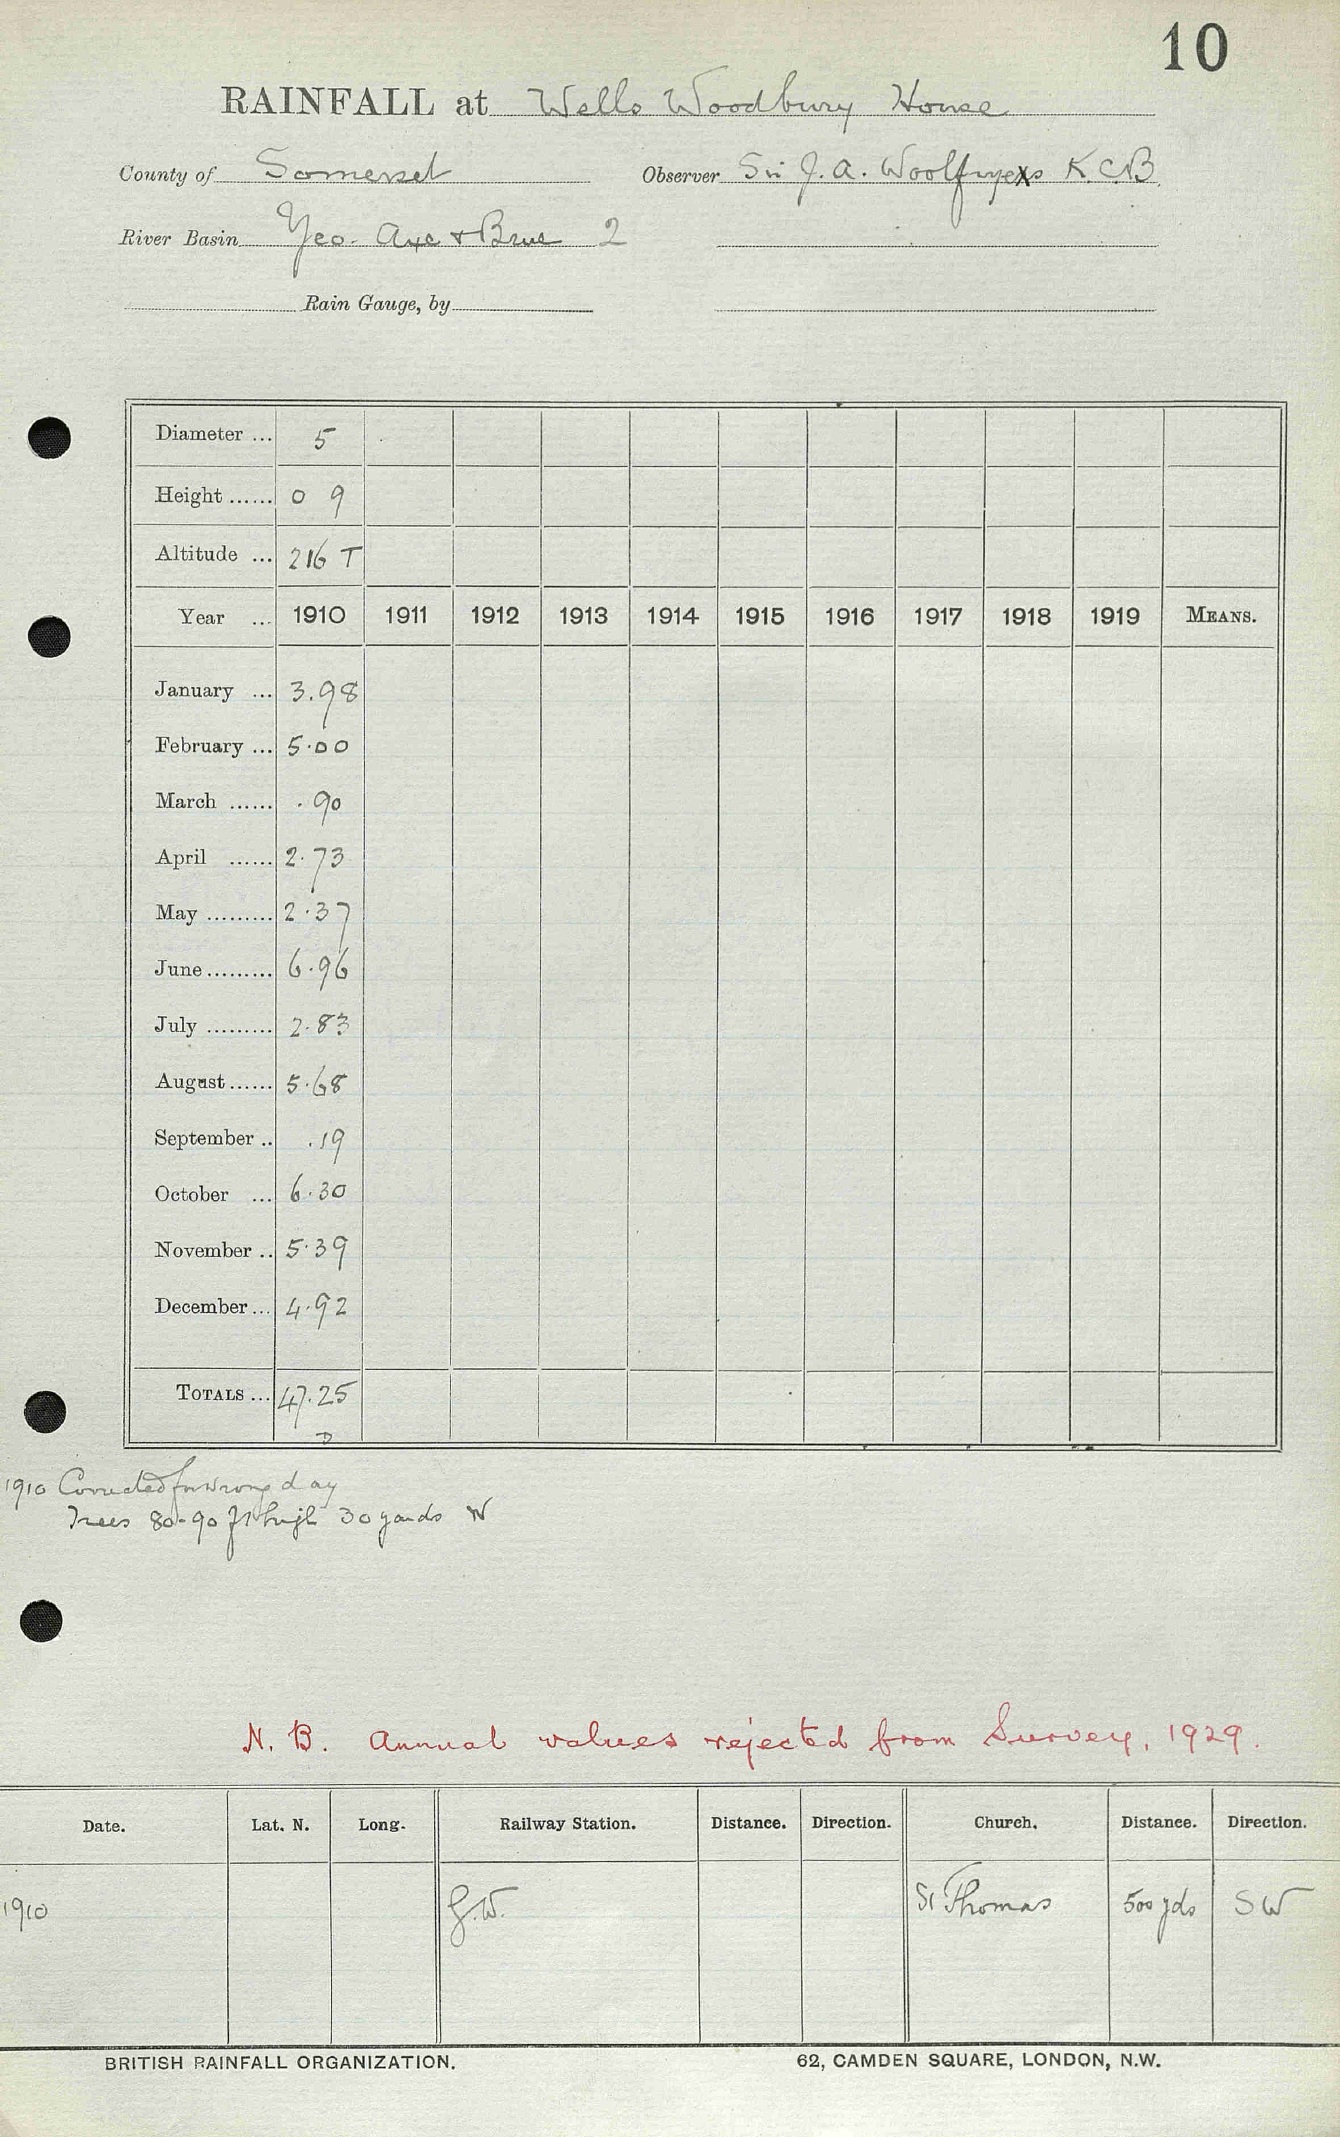 10
RAINFALL at Wells Woodbury House
County of Somerset Observer Sir J. A. K.C.B.
River Basin Yeo. Axe & Brue 2
Rain Gauge, by
Diameter ... 5
Height ...... 0 9
Altitude ... 216 T
Year ... 1910 1911 1912 1913 1914 1915 1916 1917 1918 1919 MEANS.
January ... 3.98
February ... 5.00
March ...... .90
April ...... 2.73
May ......... 2.37
June ......... 6.96
July ......... 2.83
August ...... 5.68
September .. .19
October ... 6.30
November .. 5.39
December ... 4.92
TOTALS ... 47.25
D
1910 Corrected for wrong day
Trees 80-90 ft high 30 yards N
N.B. Annual values rejected from Survey, 1929.
Date. Lat. N. Long. Railway Station. Distance. Direction. Church. Distance. Direction.
1910 G.W. St Thomas 500 yds SW
BRITISH RAINFALL ORGANIZATION. 62, CAMDEN SQUARE, LONDON, N.W.